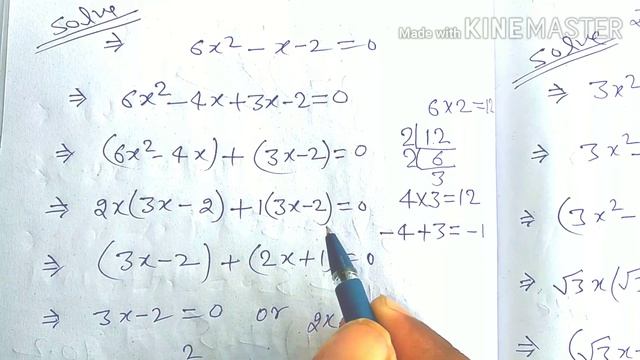 Solve
⇒ 6x² - x - 2 = 0
⇒ 6x² - 4x + 3x - 2 = 0
⇒ (6x² - 4x) + (3x - 2) = 0
⇒ 2x(3x - 2) + 1(3x - 2) = 0
⇒ (3x - 2) + (2x + 1 = 0
⇒ 3x - 2 = 0 or 2x
2
6 × 2 = 12
2 | 12
2 | 6
3
4 × 3 = 12
- 4 + 3 = - 1
Made with KINEMASTER
Solve
⇒ 3x²
⇒ 3x²
⇒ (3x² -
⇒ √3x(√3
⇒ (√3x -